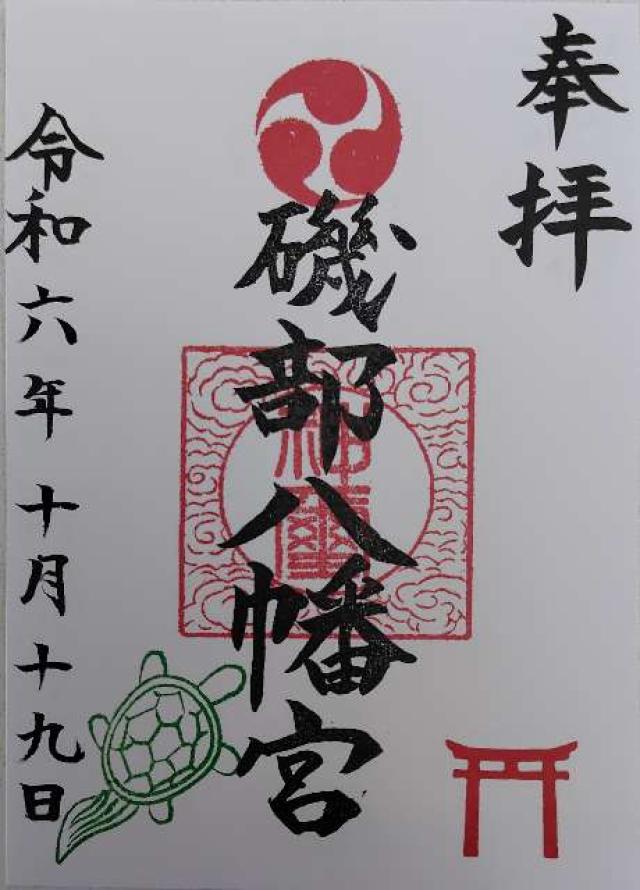 奉拝
磯部八幡宮
令和六年十月十九日